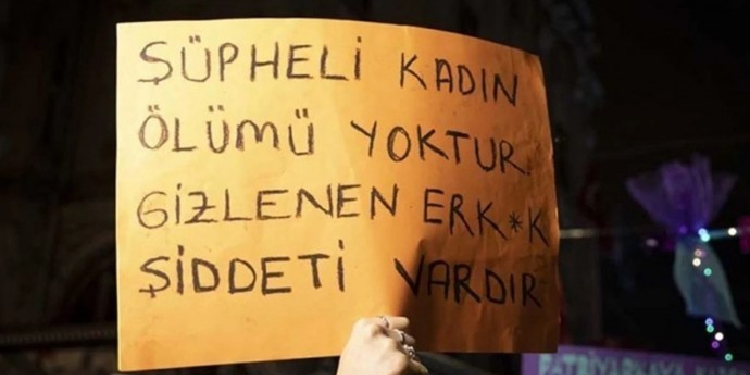 ŞÜPHELİ KADIN
ÖLÜMÜ YOKTUR.
GİZLENEN ERK*K
ŞİDDETİ VARDIR